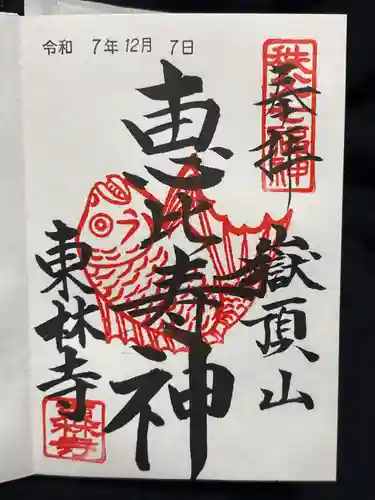 令和 7年12月 7日
奉拝
嶽頂山
恵比寿神
東林寺